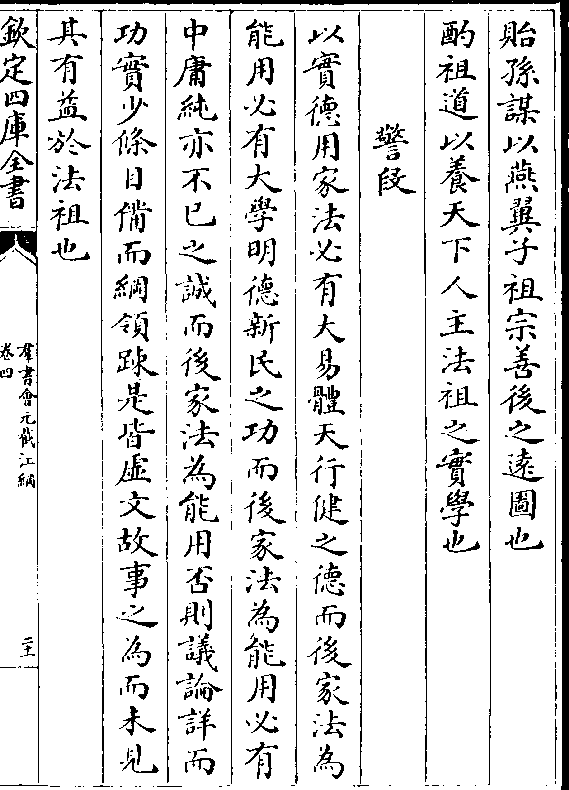 貽孫謀以燕翼子祖宗善後之遠圖也
酌祖道以養天下人主法祖之實學也
警段
以實德用家法必有大易體天行健之德而後家法為
能用必有大學明德新民之功而後家法為能用必有
中庸純亦不已之誠而後家法為能用否則議論詳而
功實少條目備而綱領踈是皆虛文故事之為而未見
其有益於法祖也
欽定四庫全書
羣書會元截江網
卷四